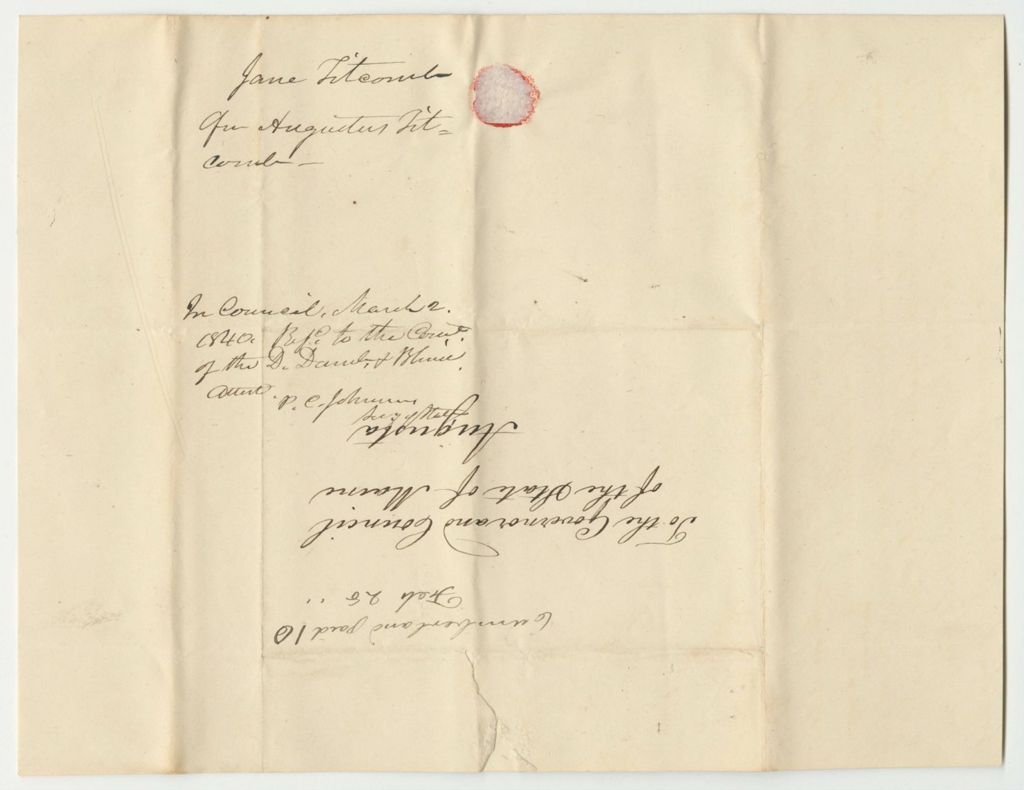 Jane Titcomb
for Augustus Tit=
comb —
In Council, March 2.
1840. Refd. to the Com.
of the D. Dumb, & Blind.
Attest.
P. C. Johnson
Sec. of State
Cumberland paid 10
Feb 25 ..
To the Governor and Council
of the State of Maine
Augusta